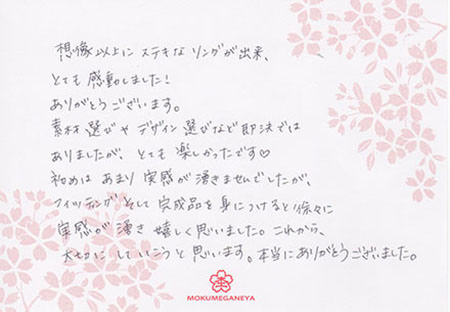 想像以上にステキなリングが出来、
とても感動しました!
ありがとうございます。
素材選びやデザイン選びなど即決では
ありましたが、とても楽しかったです♡
初めはあまり実感が湧きませんでしたが、
フィッティングそして完成品を身につけると徐々に
実感が湧き嬉しく思いました。これから、
大切にしていこうと思います。本当にありがとうございました。
MOKUMEGANEYA